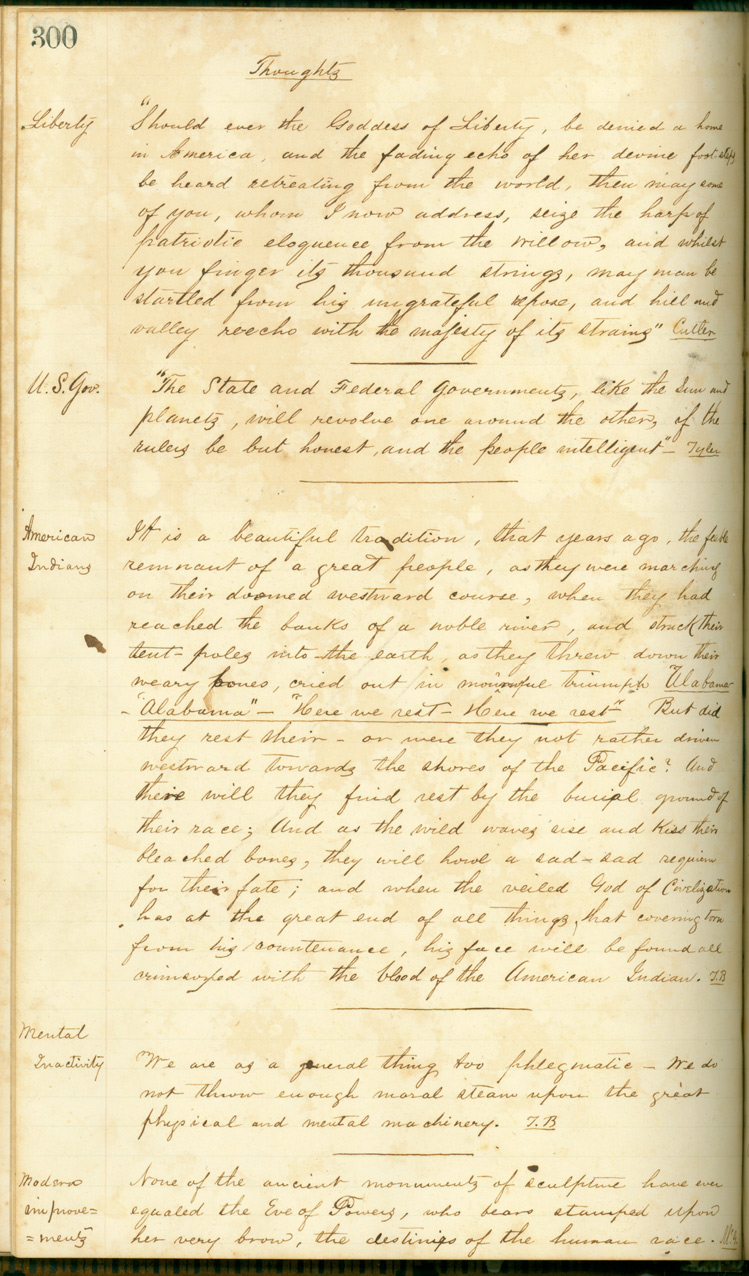 300
Thoughts
Liberty
"Should ever the Goddess of Liberty, be denied a home
in America, and the fading echo of her devine foot steps
be heard retreating from the world, then may some
of you, whom I now address, seize the harp of
patriotic eloquence from the willow, and whilst
you finger its thousand strings, may man be
startled from his ungrateful repose, and hill and
valley reecho with the majesty of its strains" Cutler
U.S. Gov.
"The State and Federal Governments, like the Sun and
planets, will revolve one around the other, if the
rulers be but honest, and the people intelligent" – Tyler
American
Indians
It is a beautiful tradition, that years ago, the feeble
remnant of a great people, as they were marching
on their doomed westward course, when they had
reached the banks of a noble river, and struck their
tent-poles into the earth, as they threw down their
weary bones, cried out in mournful triumph "Alabama
– "Alabama" – "Here we rest – Here we rest". But did
they rest their – or were they not rather driven
westward towards the shores of the Pacific? And
there will they find rest by the burial ground of
their race; And as the wild waves rise and Kiss their
bleached bones, they will howl a sad-sad requiem
for their fate; and when the veiled God of Civilization
has at the great end of all things, that covering torn
from his countenance, his face will be found all
crimsoned with the blood of the American Indian. T.B
Mental
Inactivity
We are as a general thing too phlegmatic – We do
not throw enough moral steam upon the great
physical and mental machinery. T.B
Modern
improve=
=ments
None of the ancient monuments of sculpture have ever
equaled the Eve of Powers, who bears stamped upon
her very brow, the destinies of the human race.